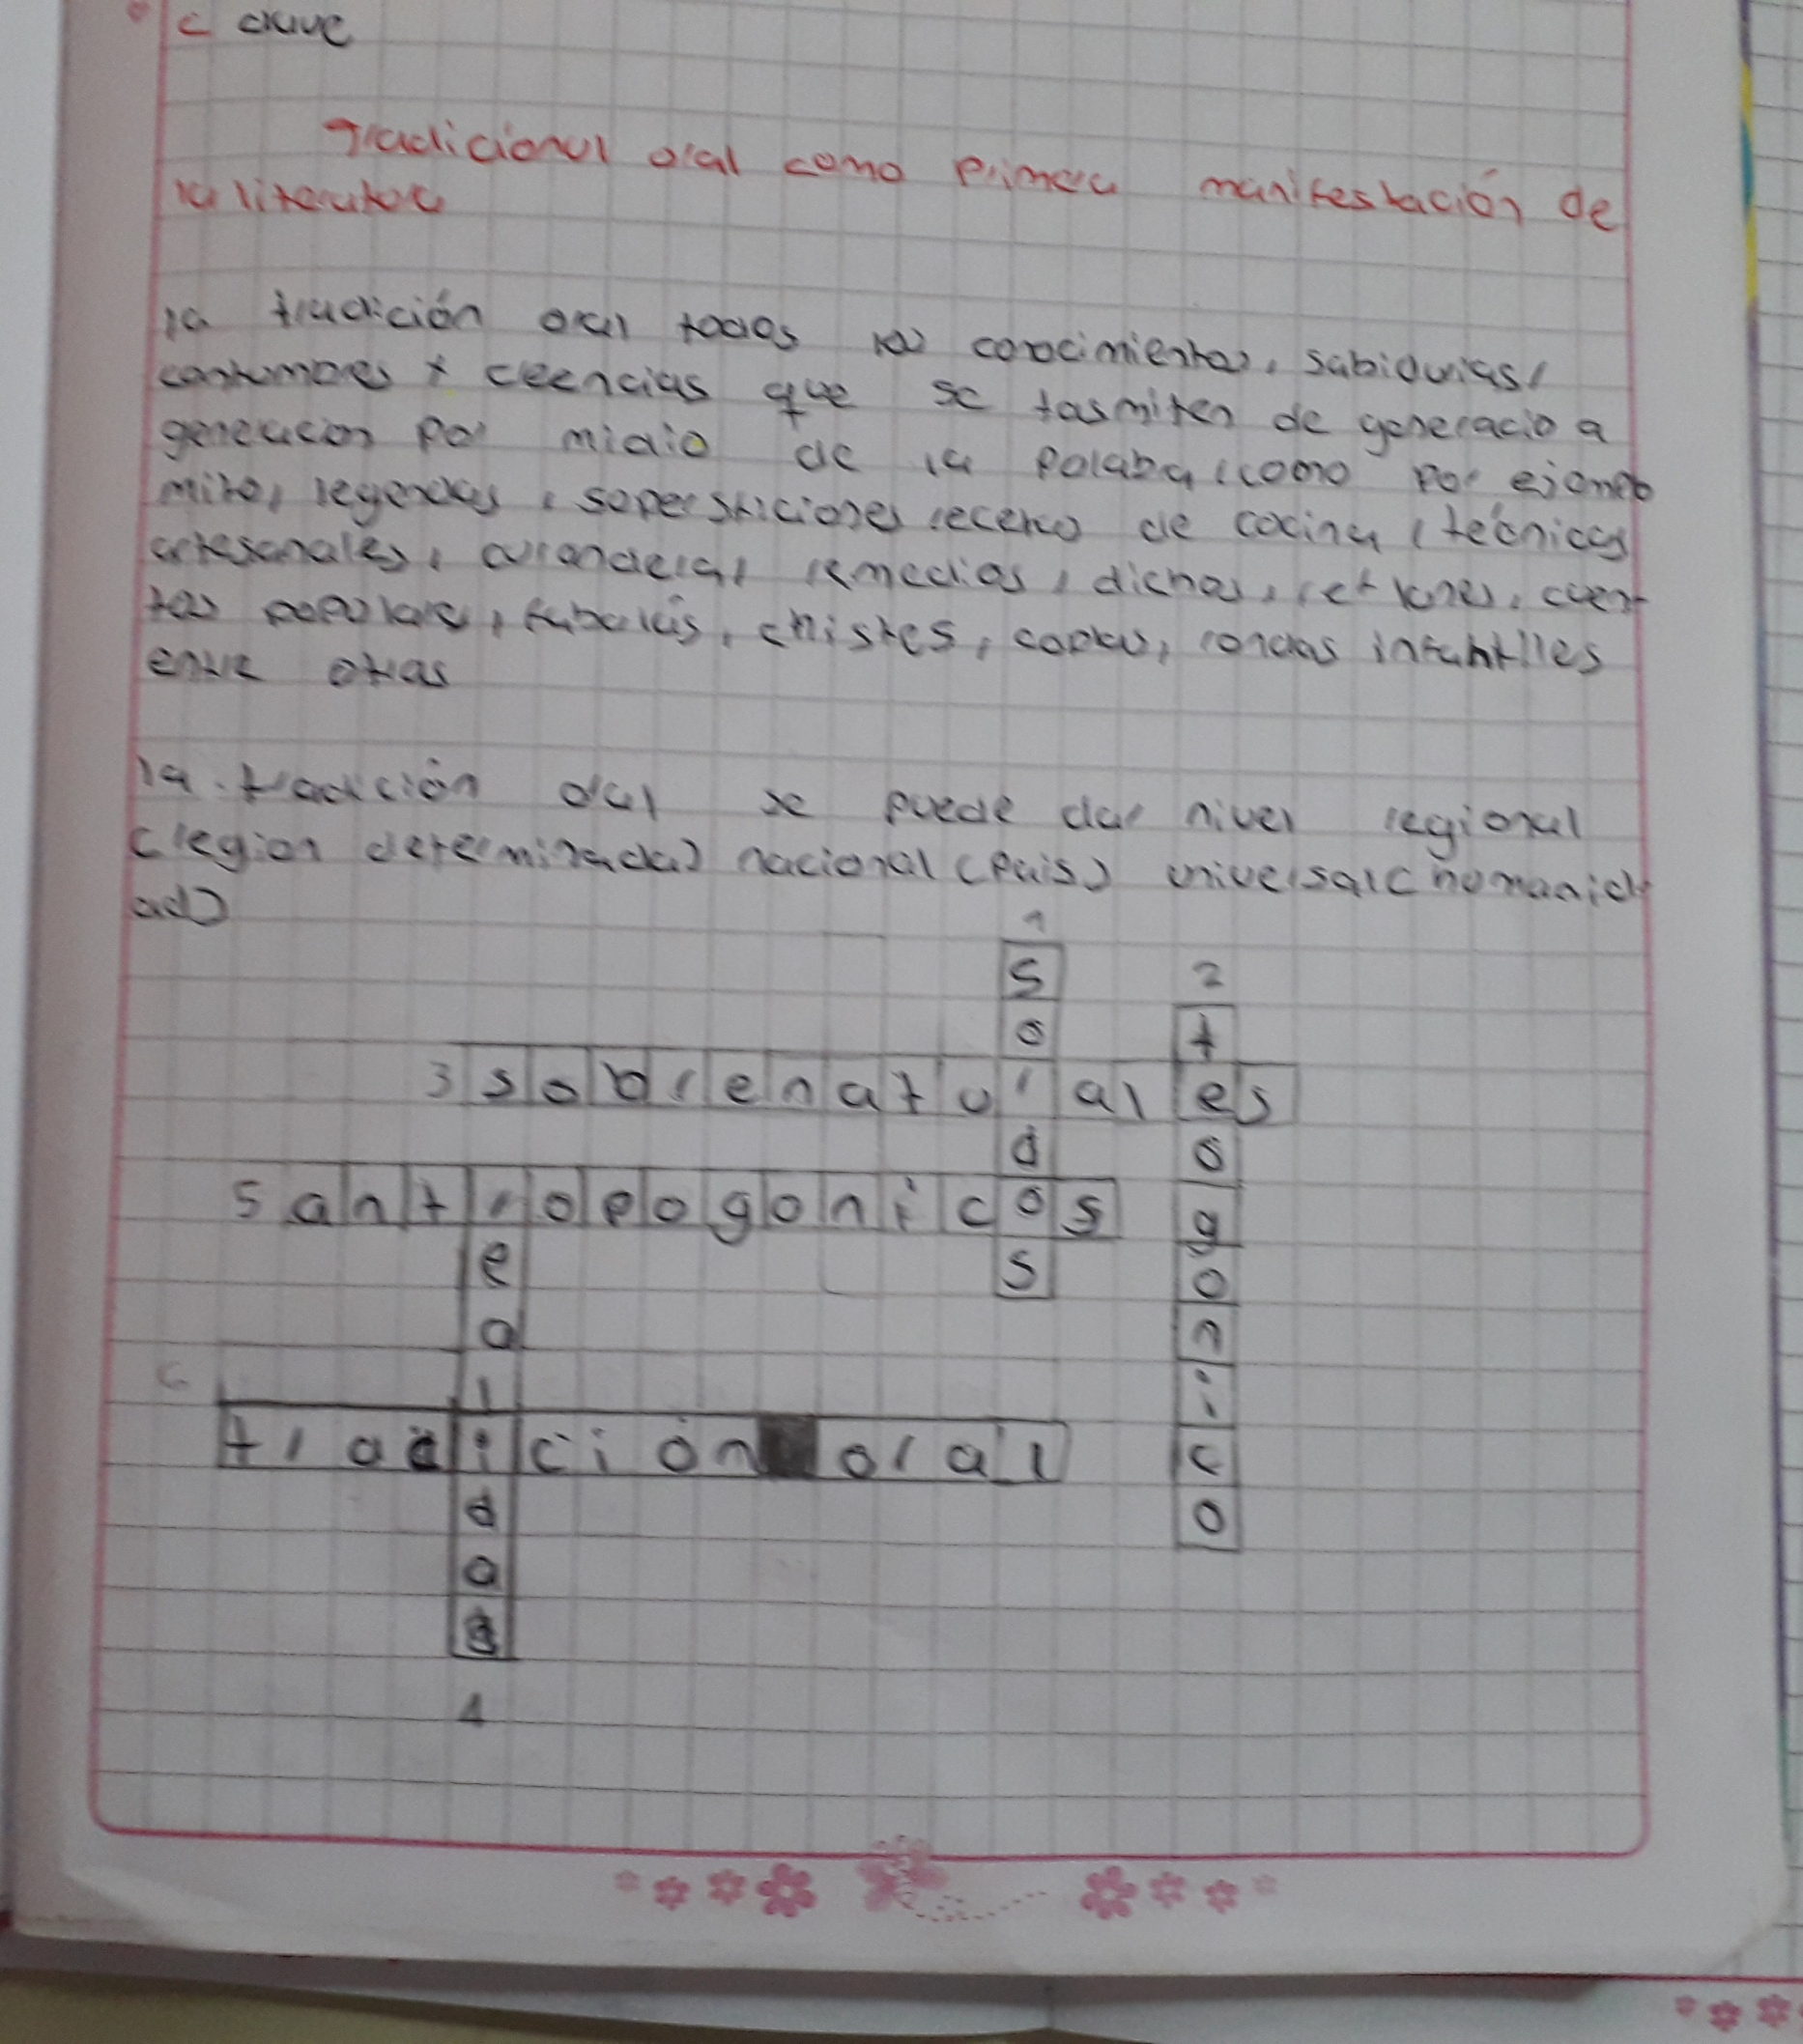 c clave
Tradicional oral como primera manifestación de
la literatura
la tradición oral todos los conocimientos, sabidurias,
contumbres y creencias que se tasmiten de generacio a
generacion por midio de la palaba, como por ejempo
mito, legendas, supersticiones, recetas de cocina, técnicas
artesanales, curanderas, remedios, dichos, refranes, cuent
tos populares, fabulas, chistes, coplas, rondas infantiles
entre otras
la tradición oral se puede dar nivel regional
(region determinada) nacional (Pais) universal (homanid
ad)
1
s 2
o t
3 sobrenaturales
d o
5 antropogonicos g
e s o
a n
6 l i
tradición oral c
d o
a
d
4